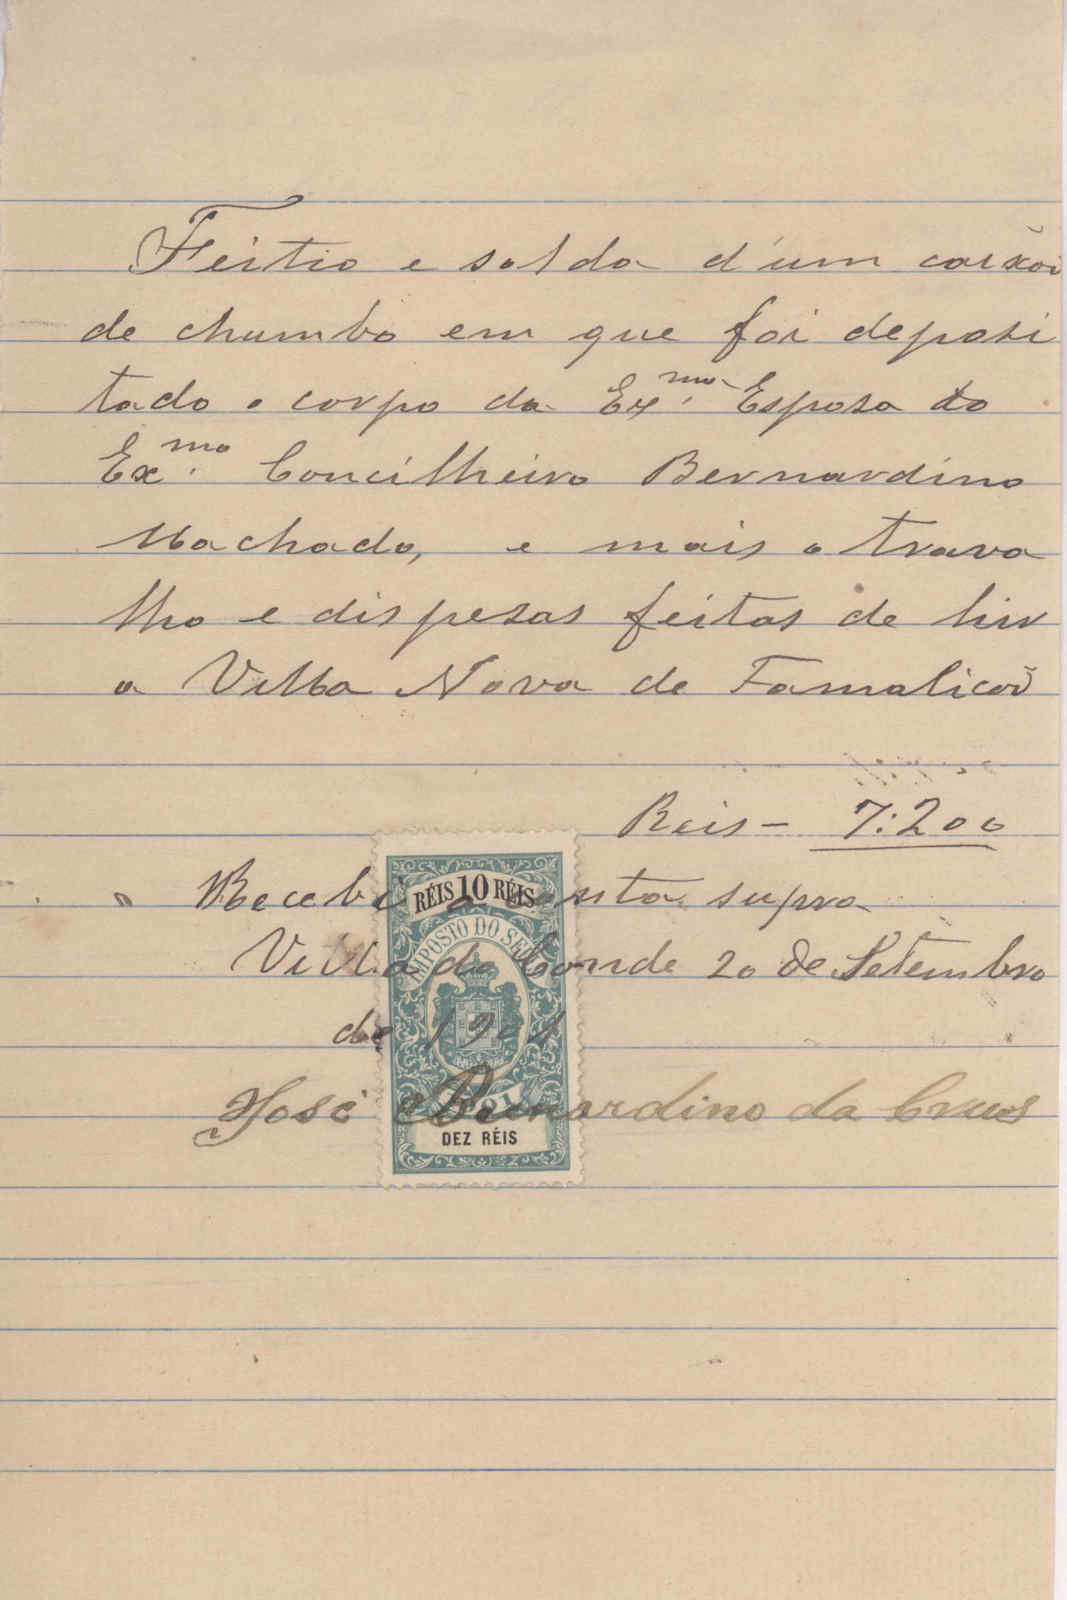 Feitio e solda d'um caixão
de chumbo em que foi deposi
tado o corpo da Ex.ma Esposa do
Ex.mo Concilheiro Bernardino
Machado, e mais o trava
lho e dispesas feitas de hir
a Villa Nova de Famalicão
Reis - 7:200
Recebi a conta supra
Villa do Conde 20 de Setembro
de 1901
José Bernardino da Cruz
RÉIS 10 RÉIS
IMPOSTO DO SELLO
1901
DEZ RÉIS